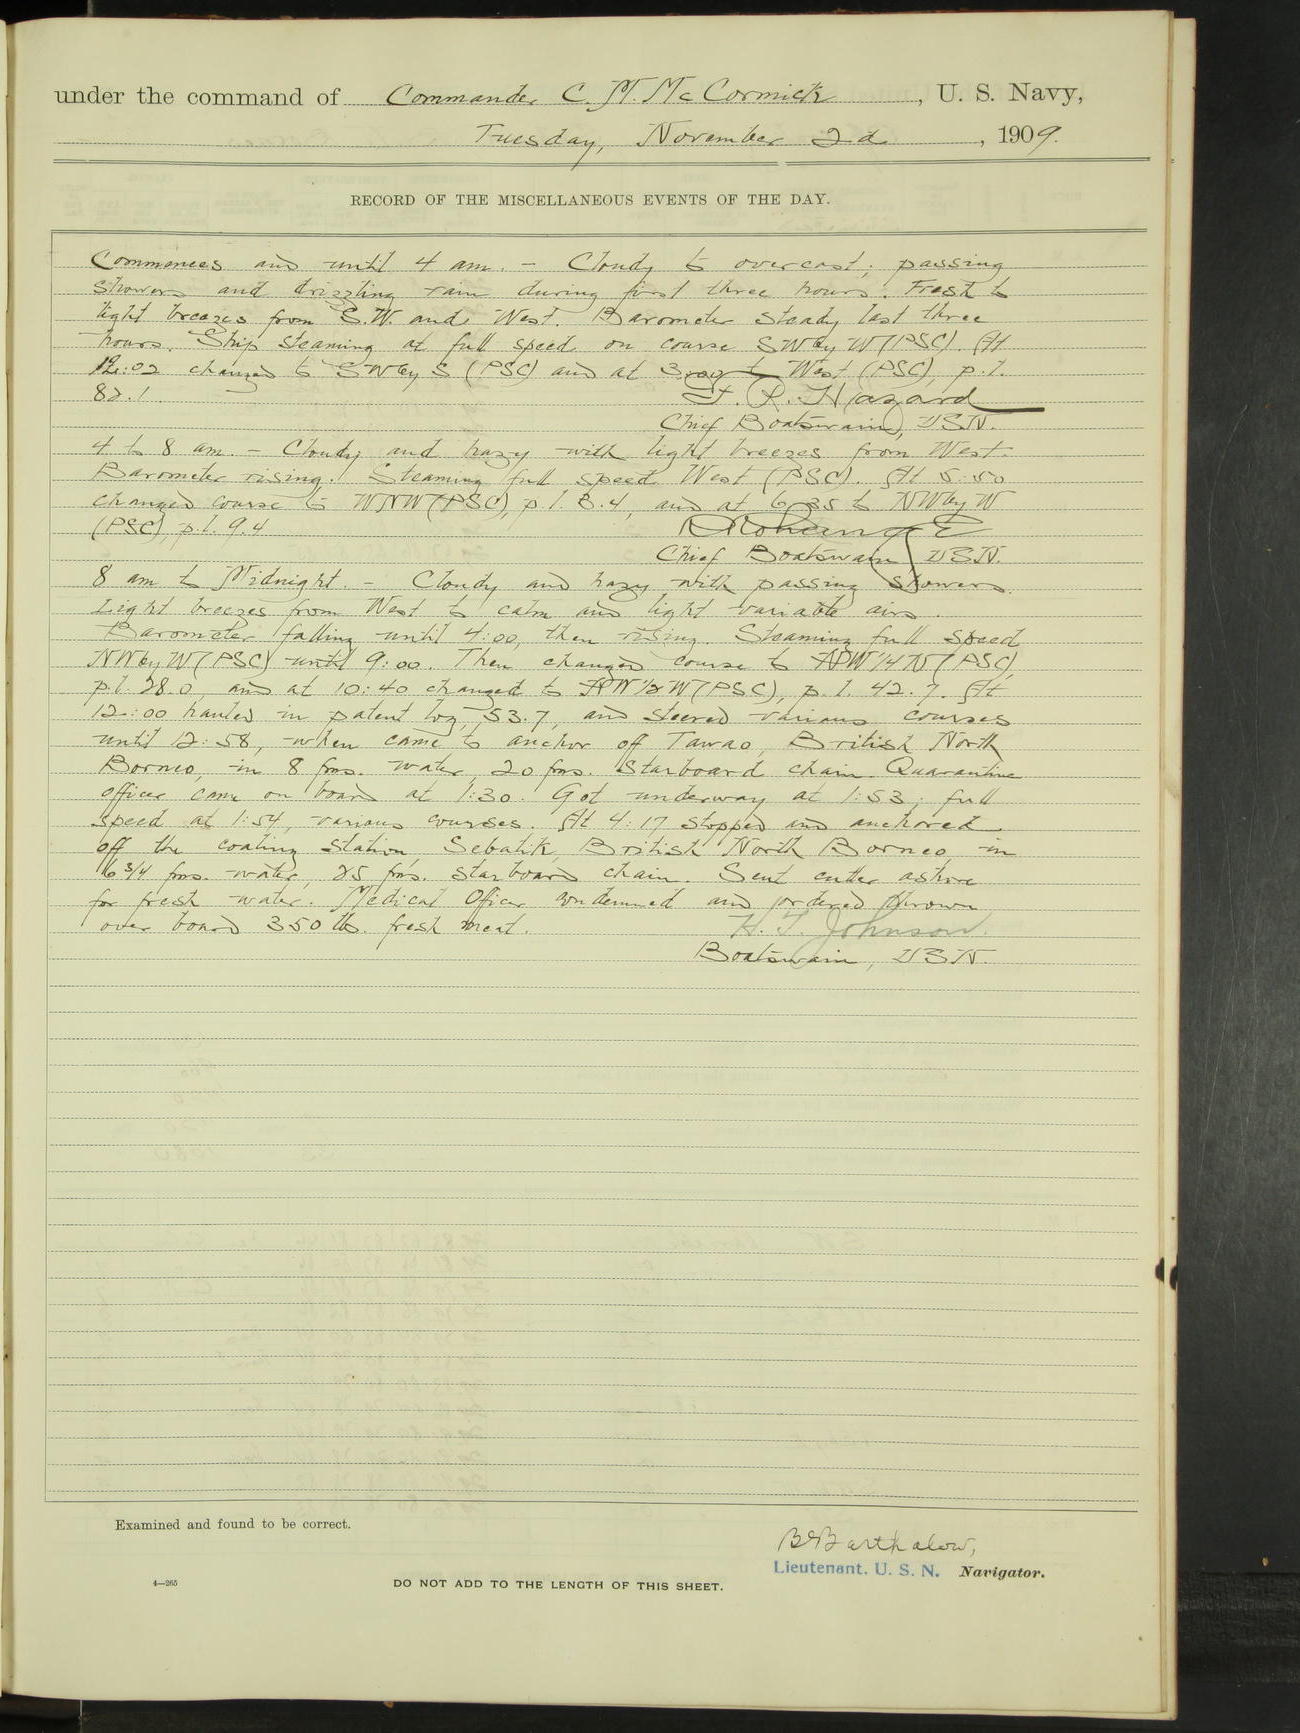 under the command of Commander C. M. McCormick, U. S. Navy,
Tuesday, November 2d, 1909.
RECORD OF THE MISCELLANEOUS EVENTS OF THE DAY.
Commences and until 4 am. - Cloudy to overcast; passing
showers and drizzling rain during first three hours. Fresh to
light breezes from S.W. and West. Barometer steady last three
hours. Ship steaming at full speed on course SWby W (PSC). At
12:02 changed to SWby S (PSC) and at to West (PSC), p.l.
82.1 F. R. Hazard
Chief Boatswain, USN.
4 to 8 am. - Cloudy and hazy with light breezes from West.
Barometer rising. Steaming full speed West (PSC). At 5:50
changed course to WNW (PSC), p.l. 3.4, and at 6:35 to NWby W
(PSC), p.l. 9.4
Chief Boatswain USN.
8 am to Midnight. - Cloudy and hazy with passing showers.
Light breezes from West to calm and light variable airs.
Barometer falling until 4:00, then rising. Steaming full speed
NWby W (PSC) until 9:00. Then changed course to 1/4 N (PSC),
p.l. 28.0, and at 10:40 changed to 1/2 W (PSC), p.l. 42.7. At
12:00 hauled in patent log, 53.7, and steered various courses
until 12:58, when came to anchor off Tawao, British North
Borneo, in 8 fms. water, 20 fms. starboard chain. Quarantine
officer came on board at 1:30. Got underway at 1:53; full
speed at 1:54, various courses. At 4:17 stopped and anchored
off the coaling station Sebatik, British North Borneo in
6 3/4 fms. water, 25 fms. starboard chain. Sent cutter ashore
for fresh water. Medical Officer condemned and ordered thrown
over board 350 lb. fresh meat. H. T. Johnson.
Boatswain, USN.
Examined and found to be correct.
B Barthalow,
Lieutenant. U. S. N. Navigator.
4—265 DO NOT ADD TO THE LENGTH OF THIS SHEET.